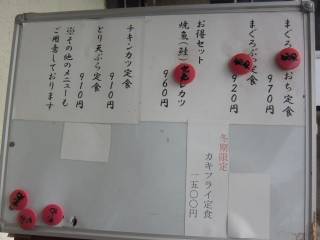 まぐろ おち定食
970
まぐろぶつ定食
920
お得セット
焼魚(鮭) カツ
960円
チキンカツ定食
910円
とり天ぷら定食
910円
※その他のメニューも
ご用意しております
冬期限定
カキフライ定食
一五〇〇円